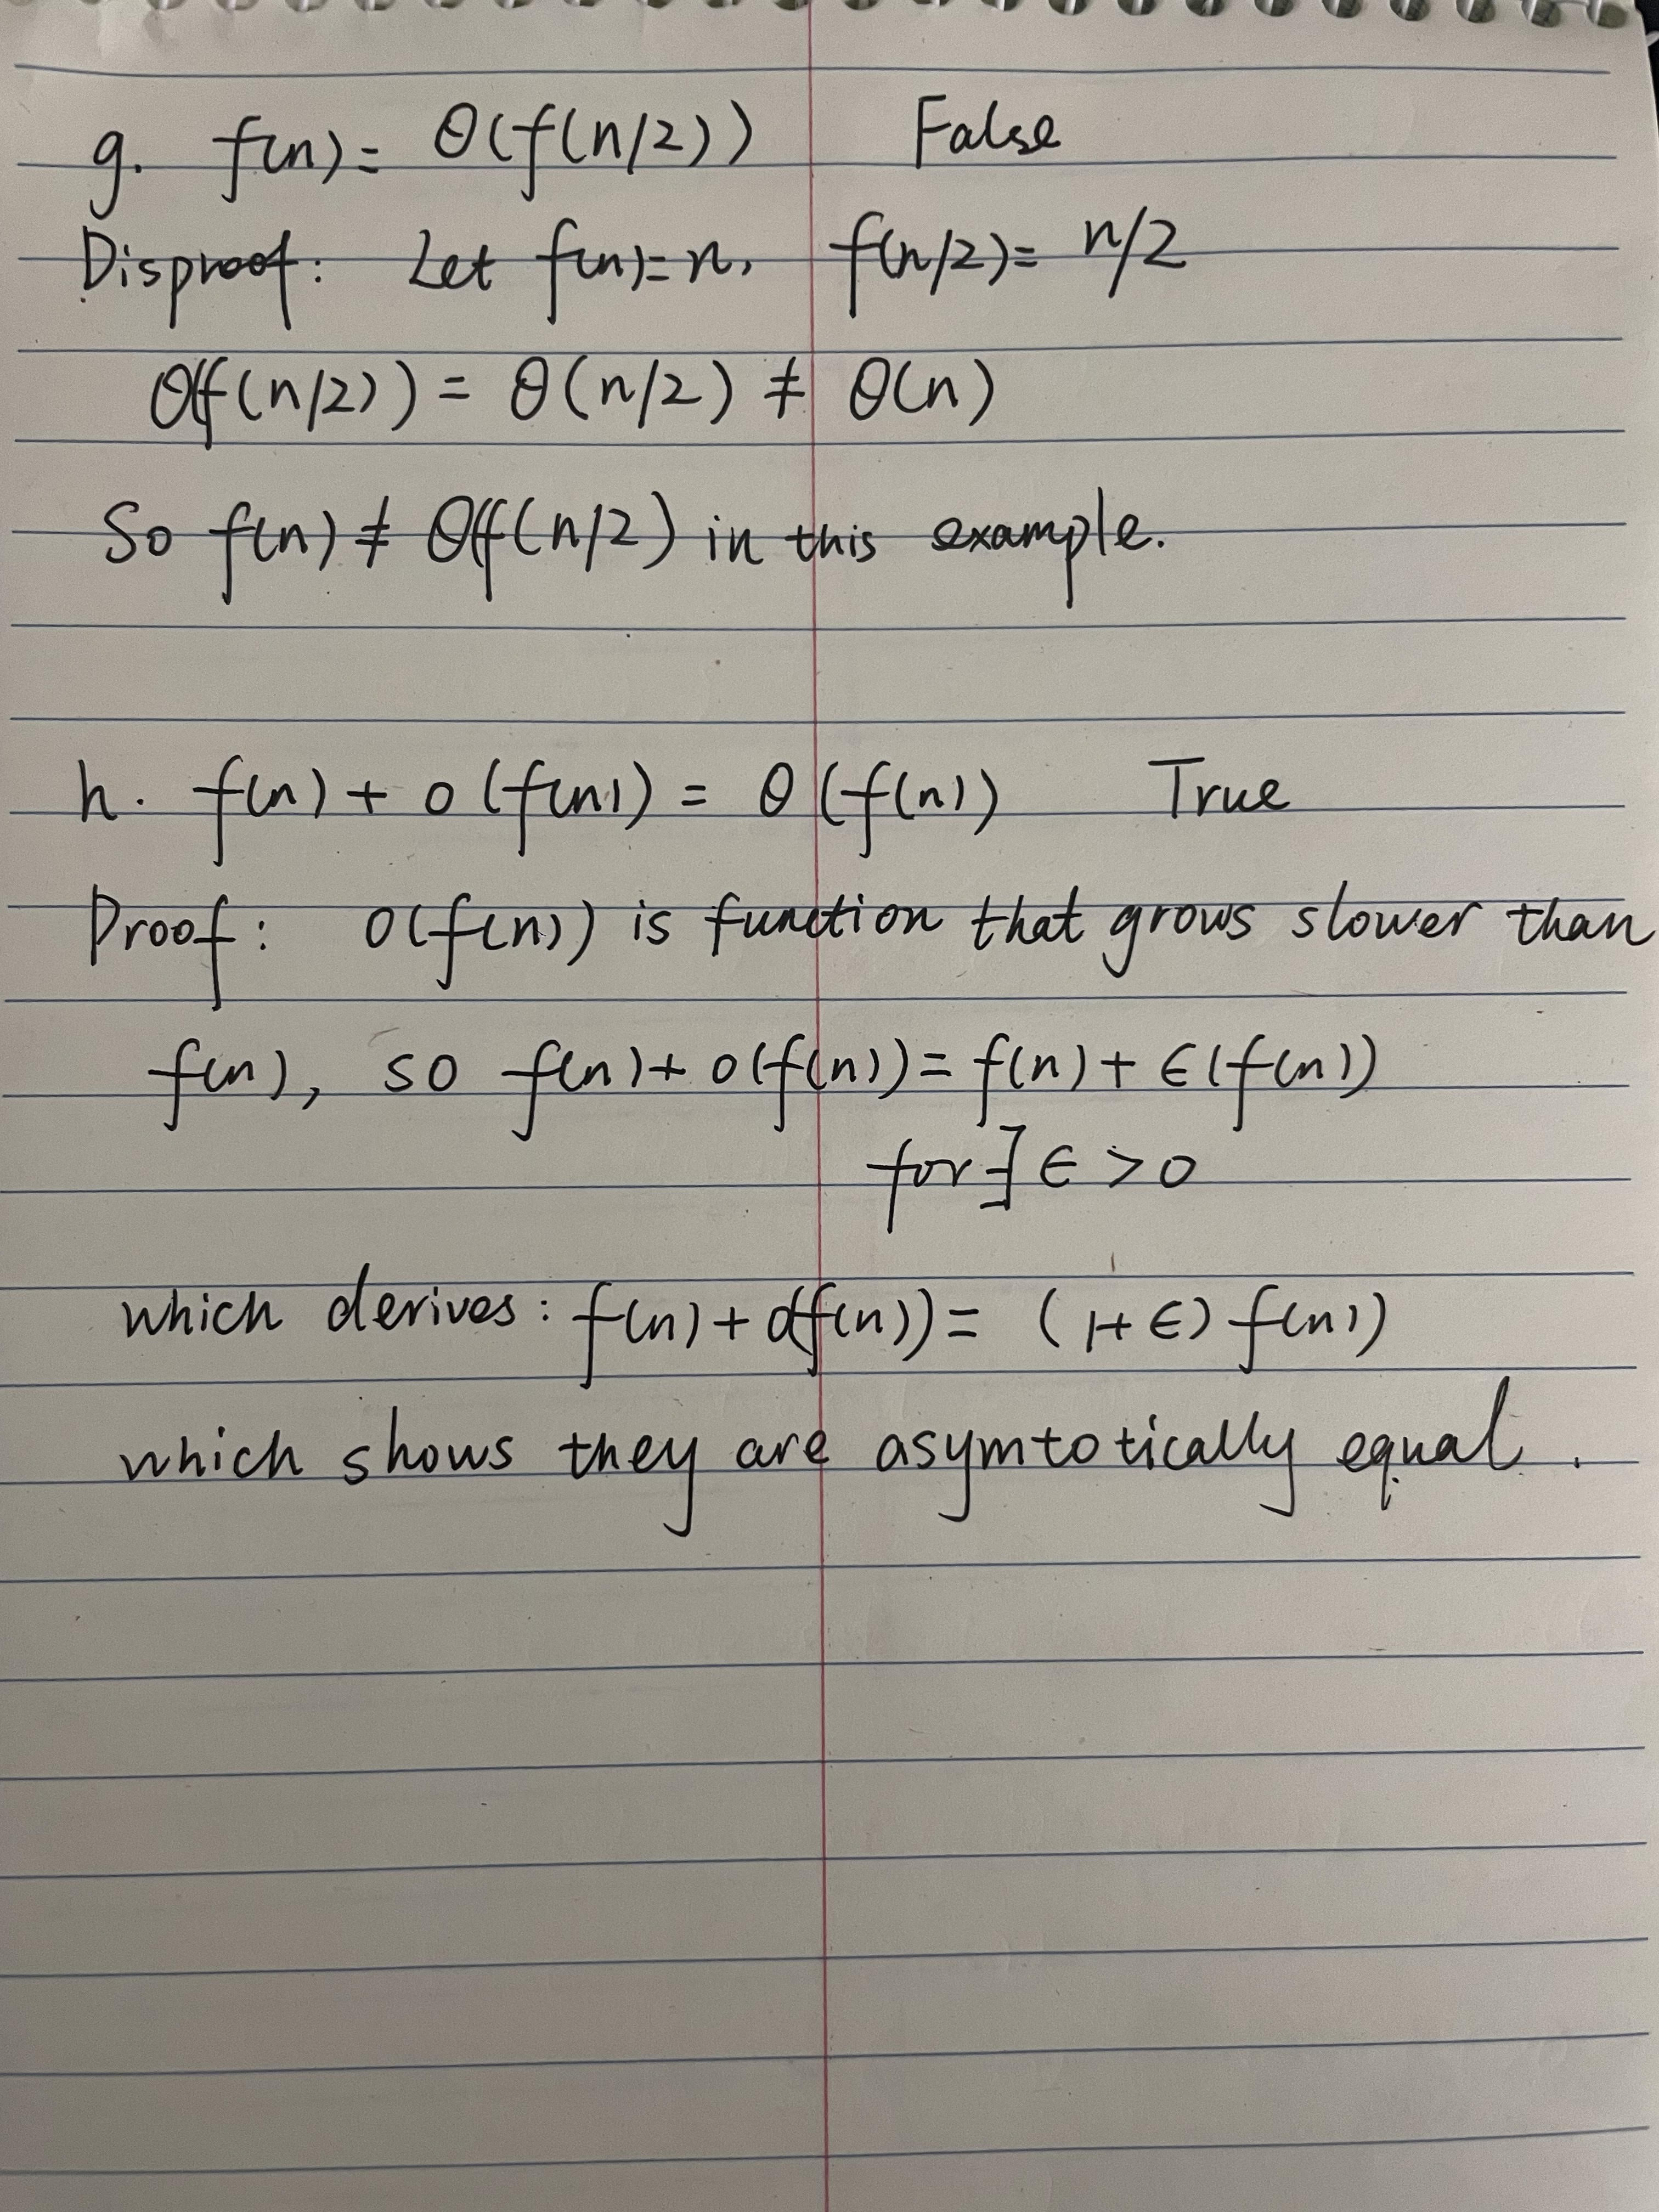 g. f(n) = Θ(f(n/2)) False
Disproof: Let f(n)=n, f(n/2)= n/2
Θ(f(n/2)) = Θ(n/2) ≠ Θ(n)
So f(n) ≠ Θ(f(n/2) in this example.
h. f(n) + o(f(n)) = Θ(f(n)) True
Proof: o(f(n)) is function that grows slower than
f(n), so f(n)+ o(f(n)) = f(n) + ϵ(f(n))
for ∃ ϵ > 0
which derives: f(n) + o(f(n)) = (1+ϵ) f(n))
which shows they are asymtotically equal.